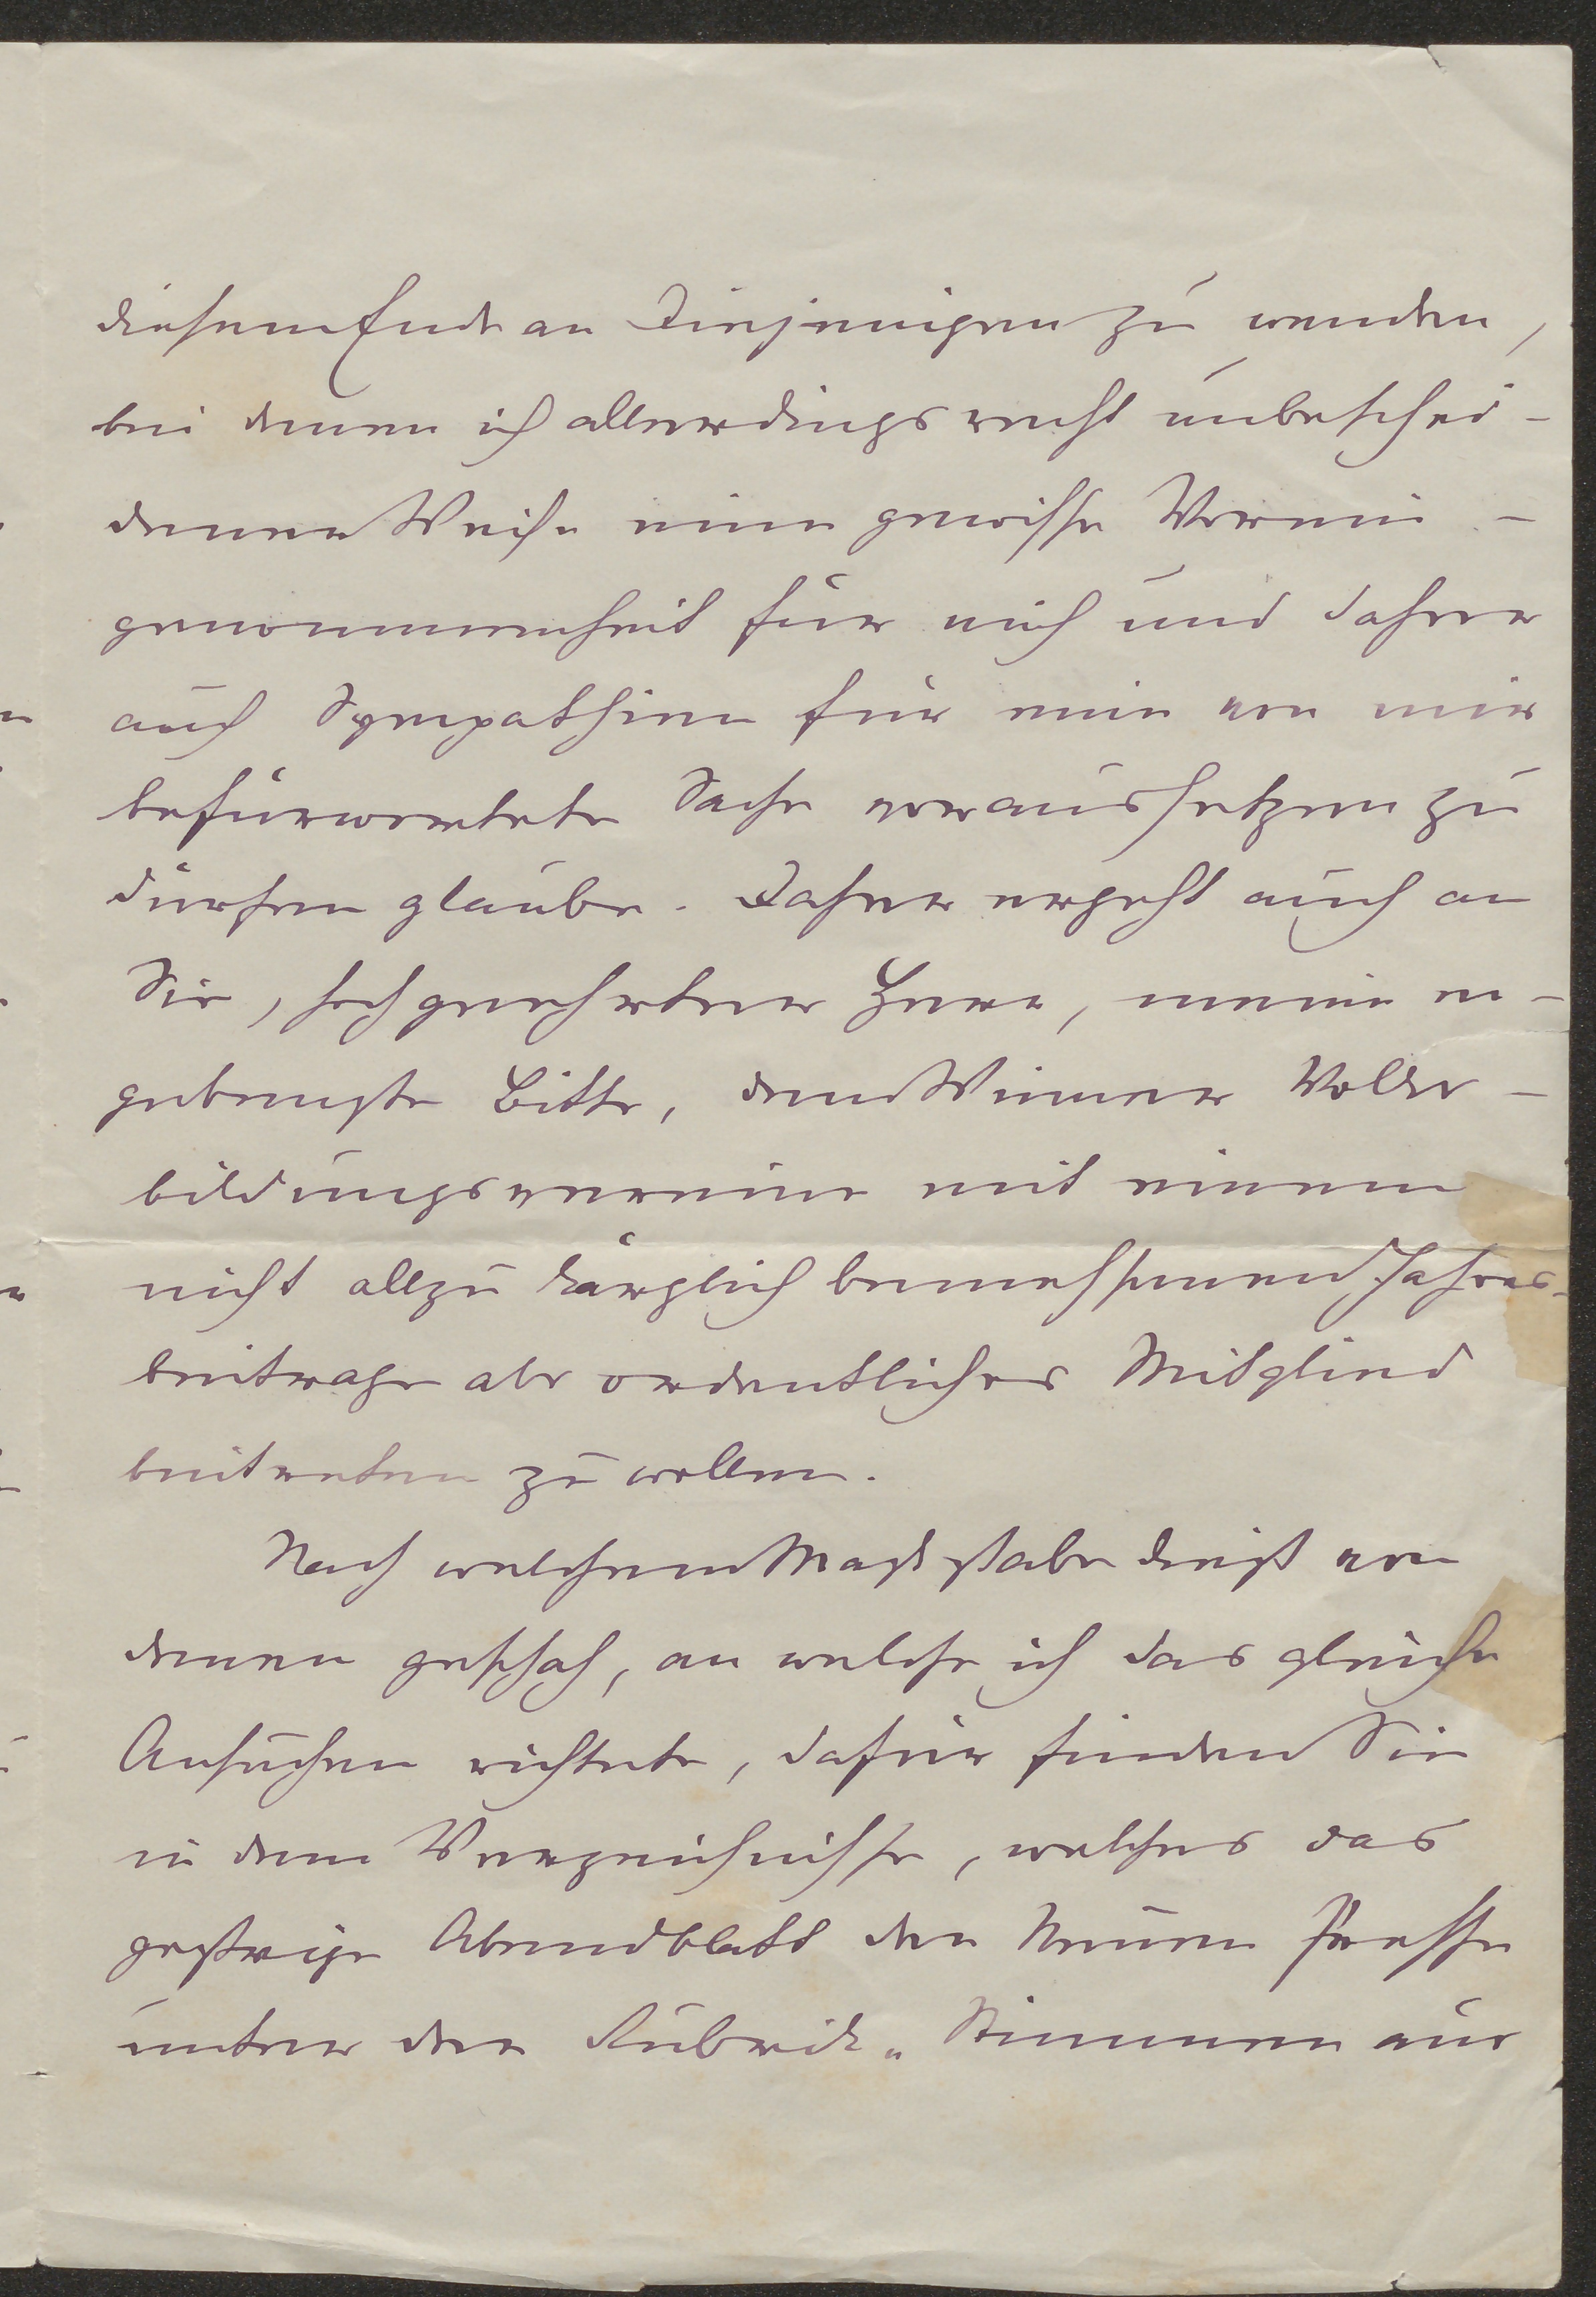 diesem Ende an Diejenigen zu wenden,
bei denen ich allerdings recht unbeschei-
dener Weise eine gewisse Vorein-
genommenheit für mich und daher
auch Sympathien für eine von mir
befürwortete Sache voraussetzen zu
dürfen glaube. Daher ergeht auch an
Sie, hochgeehrter Herr, meine er-
gebenste Bitte, dem Wiener Volks-
bildungsvereine mit einem
nicht allzu kärglich bemessenen Jahres-
beitrage als ordentliches Mitglied
beitreten zu wollen.
Nach welchem Maßstabe dieß von
denen geschah, an welche ich das gleiche
Ansuchen richtete, dafür finden Sie
in dem Verzeichnisse, welches das
gestrige Abendblatt der Neuen Presse
unter der Rubrik „Stimmen aus